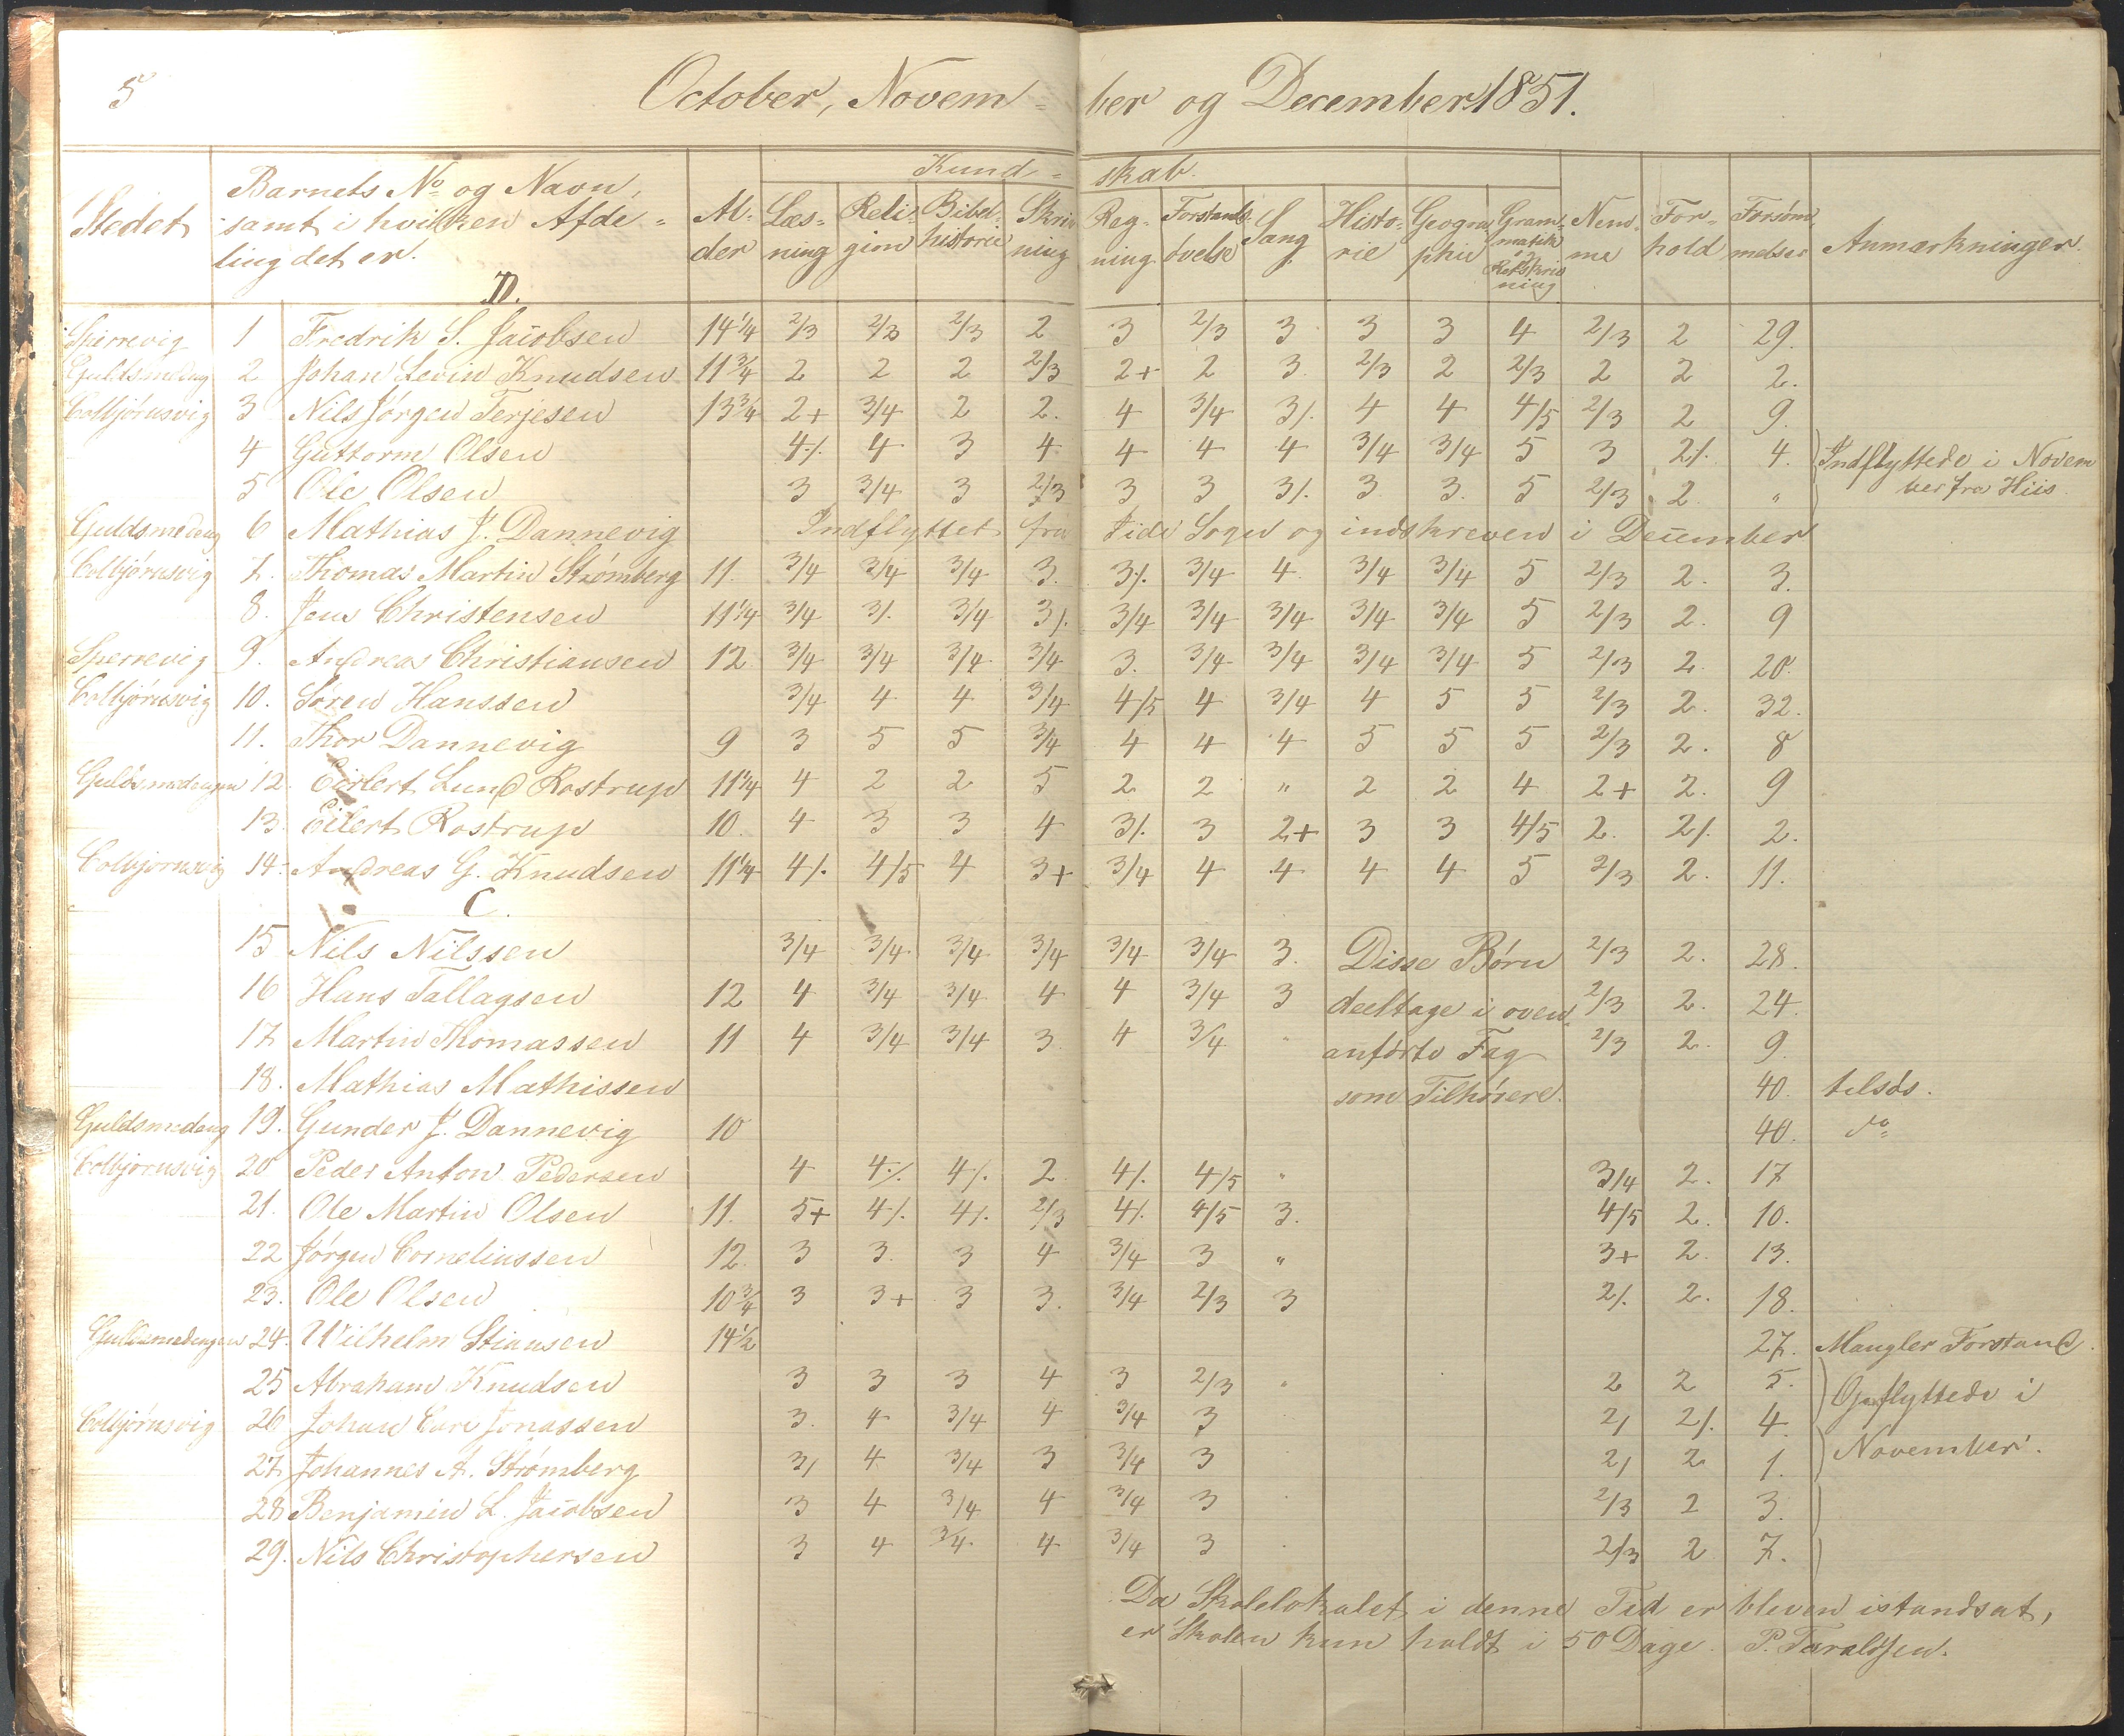 5
October, November og December 1851.
Kundskab.
Stedet | Barnets No og Navn, samt i hvilken Afdeling det er. | Alder | Læsning | Religion | Bibelhistorie | Skrivning | Regning | Forstandsøvelse | Sang | Historie | Geographie | Grammatik og Retskrivning | Nemme | Forhold | Forsømmelser | Anmærkninger.
D.
Sperrevig 1 Fredrik S. Jacobsen 14 1/4 2/3 2/3 2/3 2 3 2/3 3 3 3 4 2/3 2 29.
Guldsmedeng 2 Johan Levin Knudsen 11 3/4 2 2 2 2/3 2+ 2 3. 2/3 2 2/3 2 2 2.
Colbjørnsvig 3 Nils Jørgen Terjesen 13 3/4 2+ 3/4 2 2. 4 3/4 3/. 4 4 4/5 2/3 2 9.
4 Guttorm Olsen 4/. 4 3 4 4 4 4 3/4 3/4 5 3 2/. 4. Indflyttede i Novem
5 Ole Olsen 3 3/4 3 2/3 3 3 3/. 3 3. 5 2/3 2. " ber fra Hiis.
Guldsmedeng 6 Mathias J. Dannevig Indflyttet fra Sogn og indskreven i December
Colbjørnsvig 7. Thomas Martin Strømberg 11. 3/4 3/4 3/4 3. 3/. 3/4 4. 3/4 3/4 5 2/3 2. 3.
8. Jens Christensen 11 1/4 3/4 3/. 3/4 3/. 3/4 3/4 3/4 3/4 3/4 5 2/3 2. 9
Sperrevig 9. Andreas Christiansen 12 3/4 3/4 3/4 3/4 3. 3/4 3/4 3/4 3/4 5 2/3 2. 20.
Colbjørnsvig 10. Søren Hanssen 3/4 4 4 3/4 4/5 4 3/4 4 5 5 2/3 2. 32.
11. Thor Dannevig 9 3 5 5 3/4 4 4 4 5 5 5 2/3 2. 8
Guldsmedengen 12. Eilert Lund Rostrup 11 1/4 4 2 2 5 2 2 " 2 2 4 2+ 2. 9
13. Eilert Rostrup 10. 4 3 3 4 3/. 3 2+ 3 3 4/5 2. 2/. 2.
Colbjørnsvig 14. Andreas G. Knudsen 11 1/4 4/. 4/5 4 3+ 3/4 4 4 4 4 5 2/3 2. 11.
C.
15 Nils Nilssen 3/4 3/4 3/4 3/4 3/4 3/4 3. Disse Børn 2/3 2. 28.
16 Hans Tallagsen 12 4 3/4 3/4 4 4 3/4 3 deeltage i oven 2/3 2. 24.
17 Martin Thomassen 11 4 3/4 3/4 3. 4 3/4 " anførte Fag 2/3 2. 9.
18. Mathias Mathissen som Tilhørere. 40.
Guldsmedeng 19. Gunder J. Dannevig 10 40. do
Colbjørnsvig 20 Peder Anton Pedersen 4 4/. 4/. 2. 4/. 4/5 " 3/4 2. 17
21. Ole Martin Olsen 11. 5+ 4/. 4/. 2/3 4/. 4/5 3. 4/5 2. 10.
22 Jørgen Corneliussen 12. 3 3. 3 4 3/4 3 " 3+ 2. 13.
23. Ole Olsen 10 3/4 3 3+ 3 3. 3/4 2/3 3 2/. 2. 18.
Guldsmedengen 24. Wilhelm Stiansen 14 1/2 27. Mangler Forstand.
25 Abraham Knudsen 3 3 3 4 3 2/3 " 2 2 5. Opflyttede i
Colbjørnsvig 26 Johan Carl Jonassen 3. 4 3/4 4 3/4 3 2/ 2/. 4.
27. Johannes A. Strømberg 3/ 4 3/4 3 3/4 3 2/ 2 1. November.
28 Benjamin L. Jacobsen 3 4 3/4 4 3/4 3 2/3 2 3.
29. Nils Christophersen 3 4 3/4 4 3/4 3 2/3 2 7.
Da Skolelokalet i denne Tid er bleven istandsat,
er Skolen kun holdt i 50 Dage. P. Taraldsen.